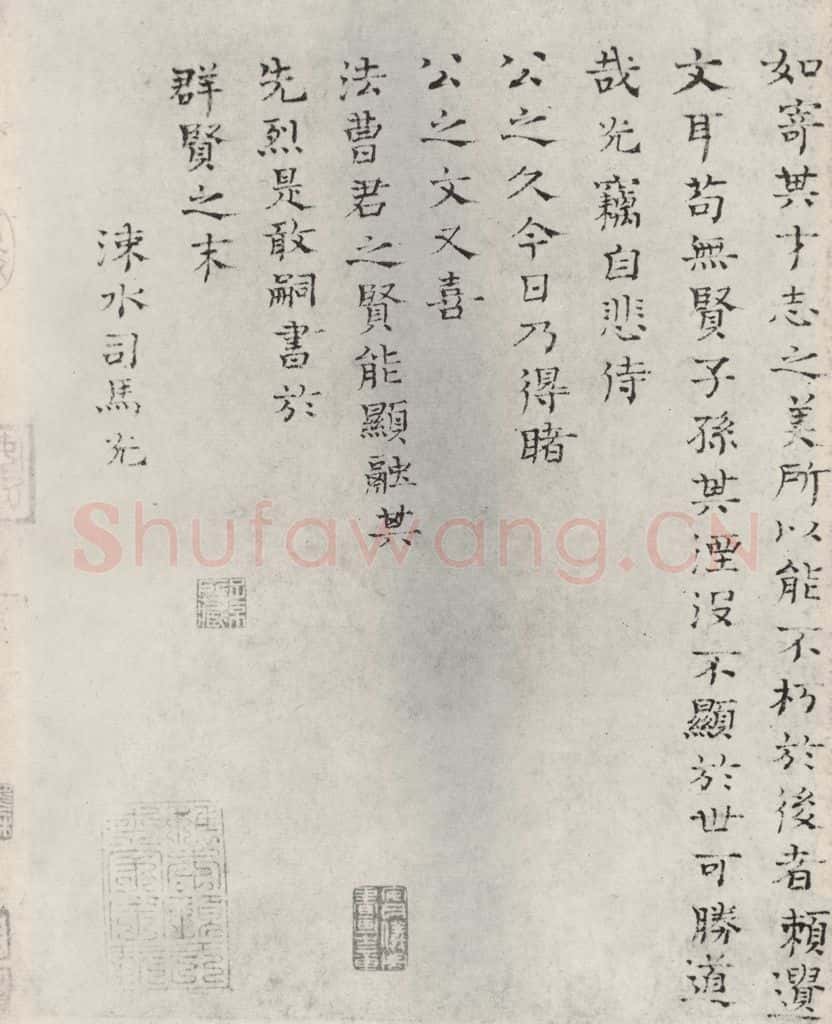 如寄其才志之美所以能不朽於後者賴遺
文耳苟無賢子孫其湮没不顯於世可勝道
哉光竊自悲待
公之久今日乃得睹
公之文又喜
法曹君之賢能顯融其
先烈是敢嗣書於
群賢之末
涑水司馬光
Shufawang.CN